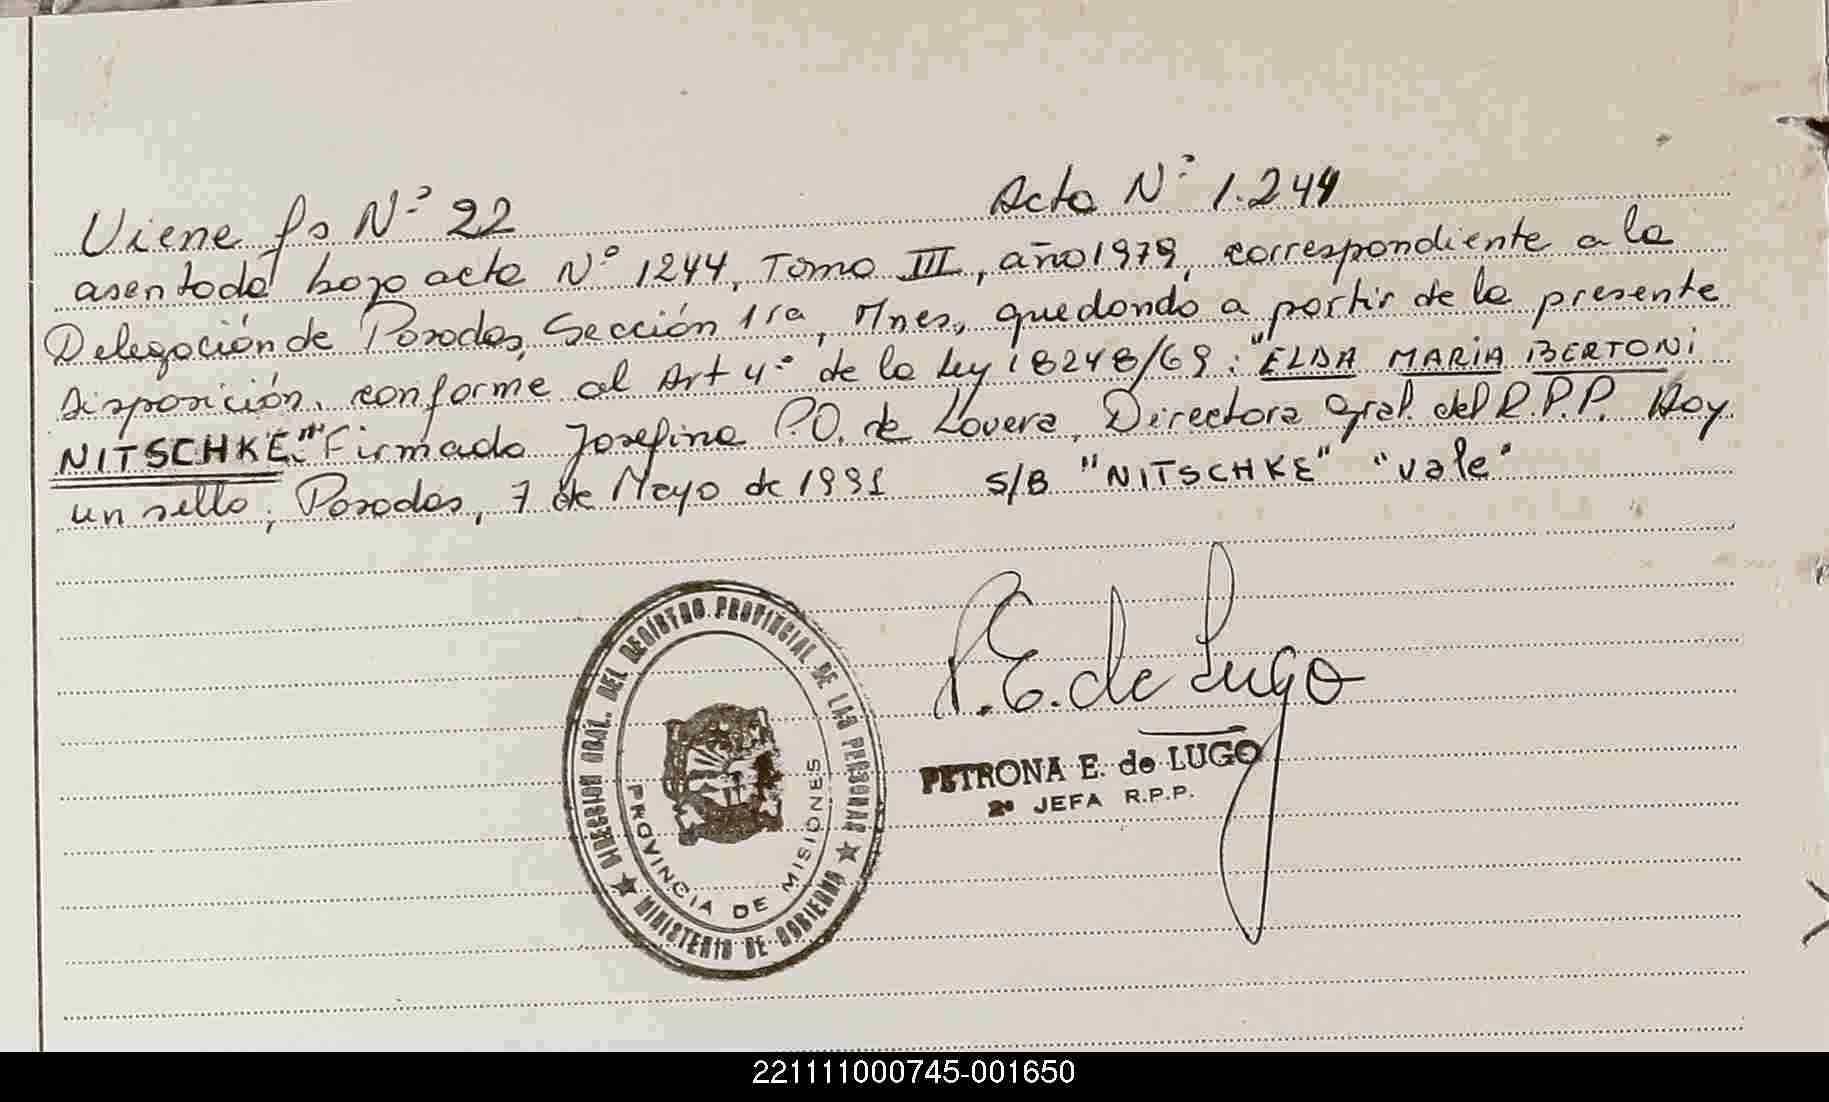 Viene fs Nº 22 Acta Nº 1.244
asentada bajo acta Nº 1244, Tomo III, año 1979, correspondiente a la
Delegación de Posadas, Sección 1ra, Mnes, quedando a partir de la presente
Disposición, conforme al Art 4º de la Ley 18248/69: "ELDA MARIA BERTONI
NITSCHKE". Firmado Josefina P.O. de Lovera, Directora Gral. del R.P.P. Hay
un sello, Posadas, 7 de Mayo de 1991 S/B "NITSCHKE" "Vale"
DIRECCION GRAL. DEL REGISTRO PROVINCIAL DE LAS PERSONAS
MINISTERIO DE GOBIERNO
PROVINCIA DE MISIONES
P.E. de Lugo
PETRONA E. de LUGO
2º JEFA R.P.P.
221111000745-001650